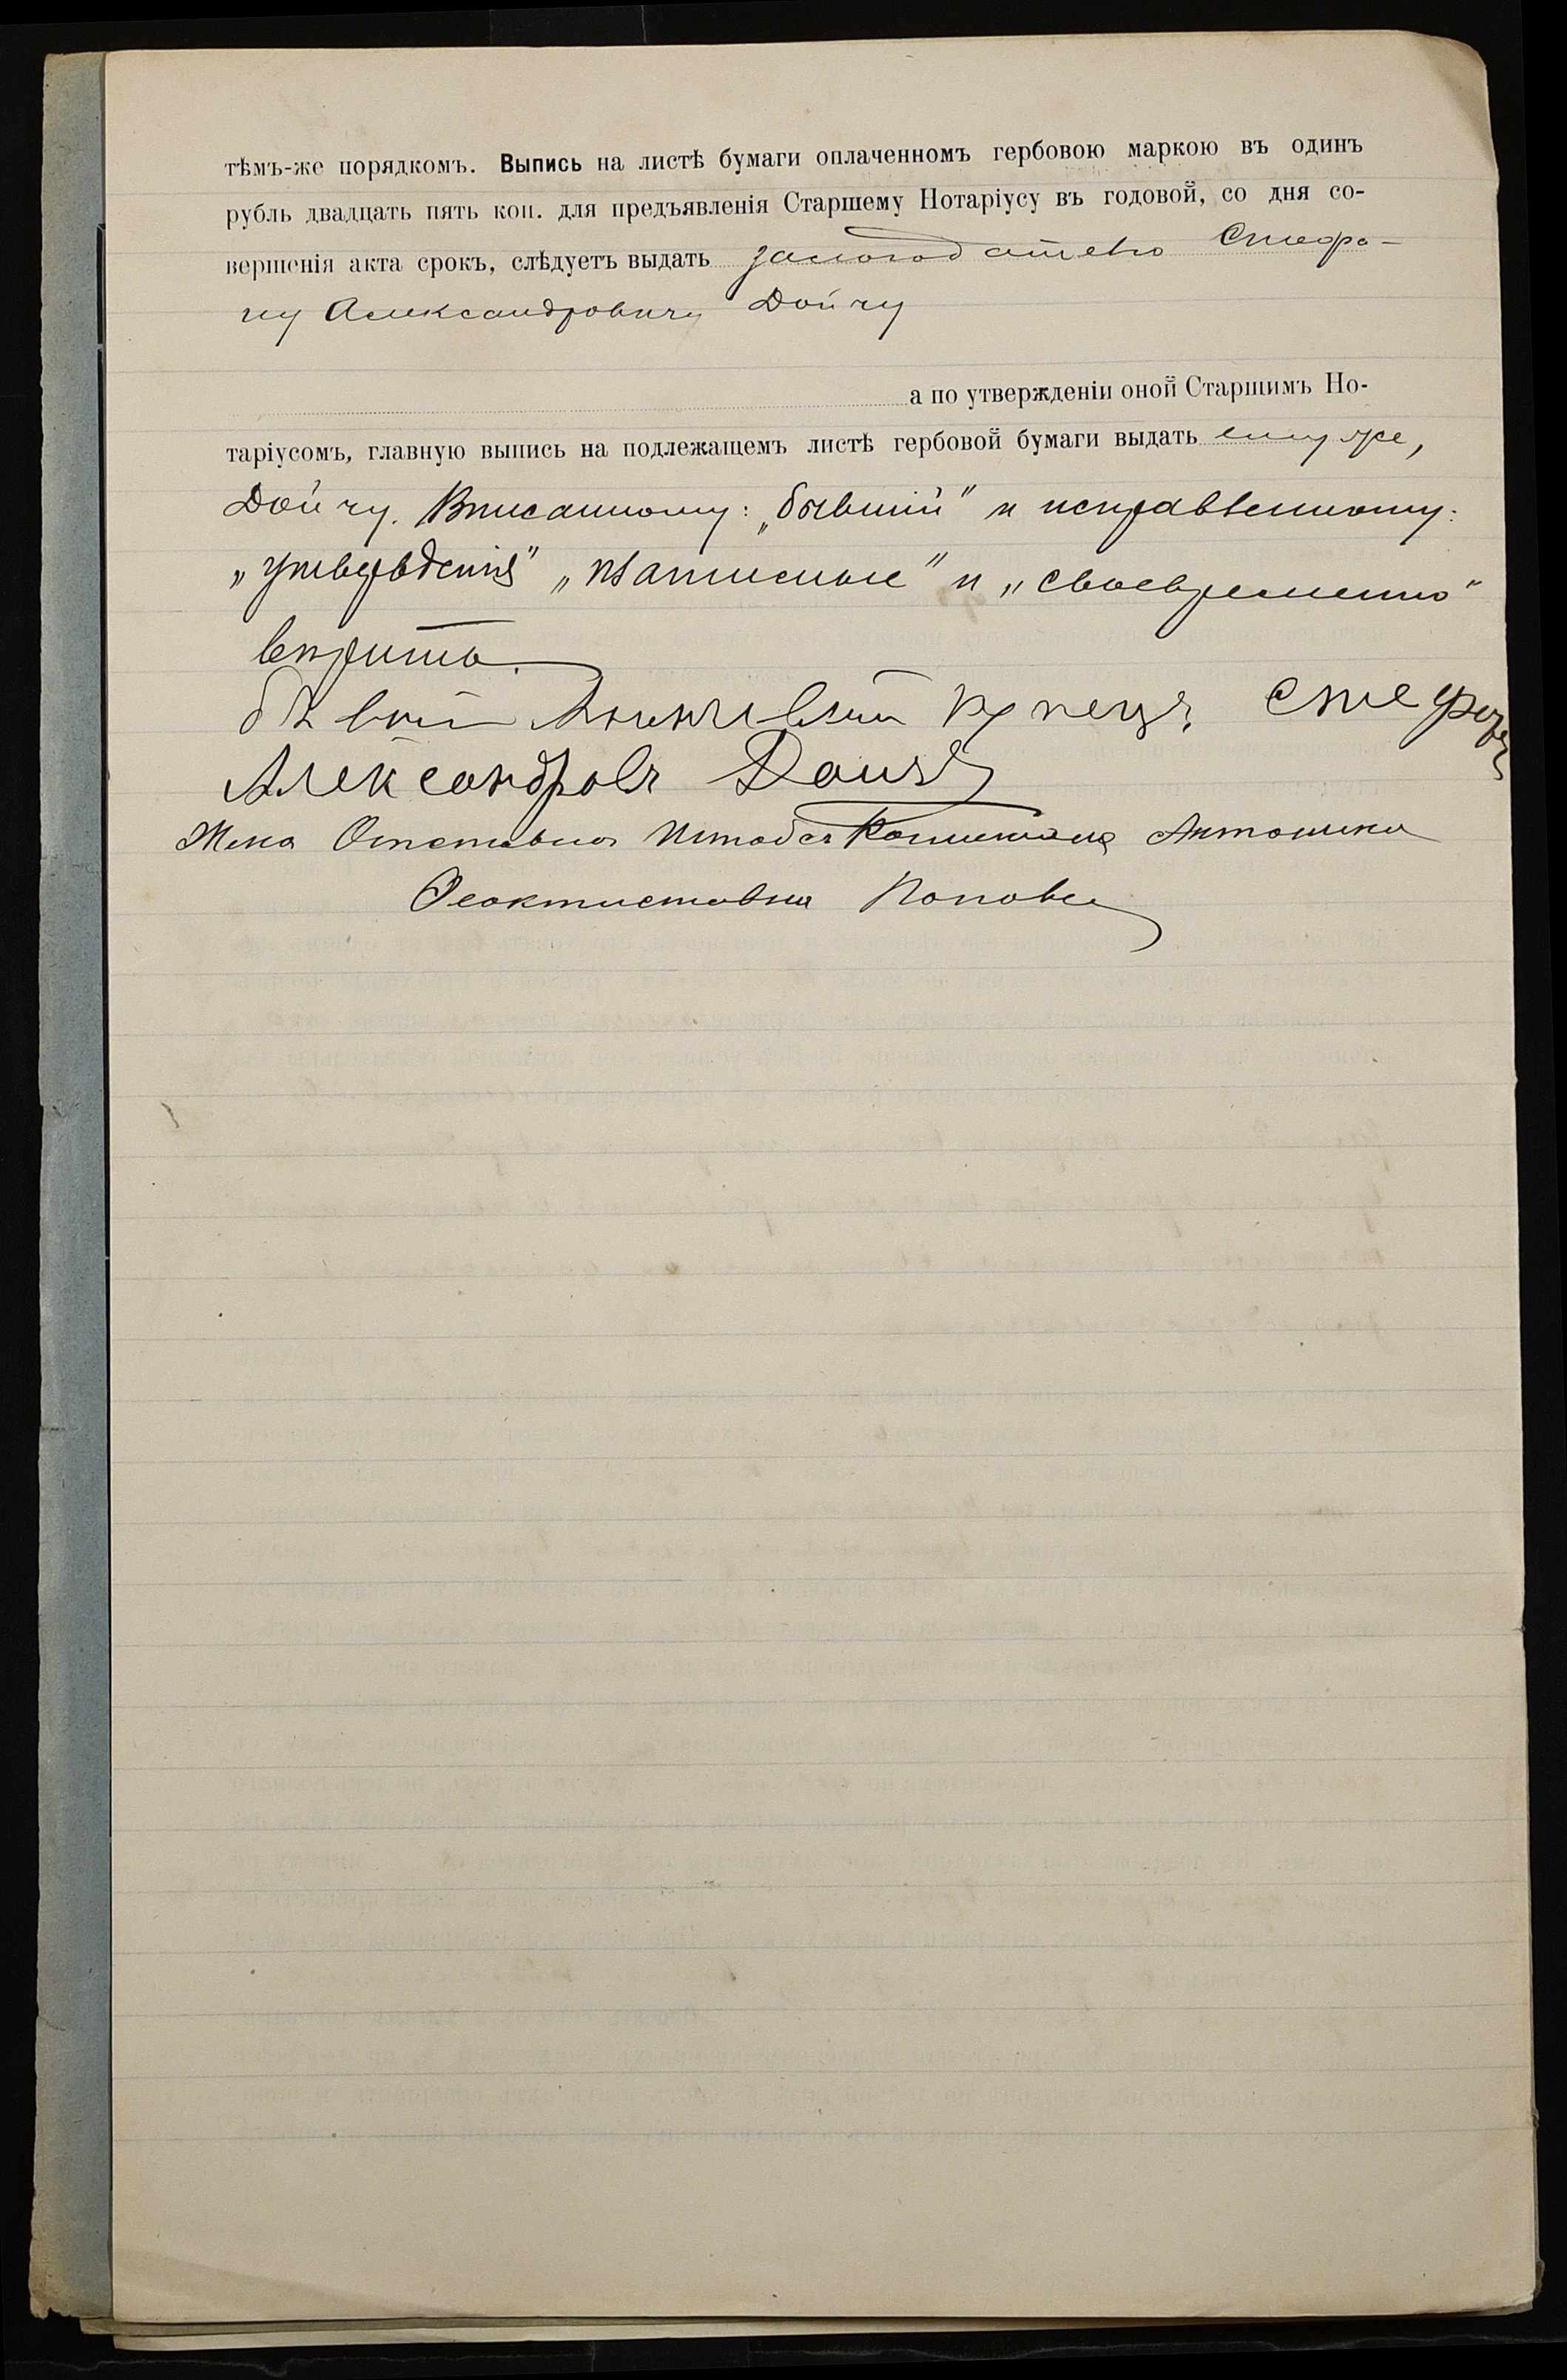 тѣмъ-же порядкомъ. Выпись на листѣ бумаги оплаченномъ гербовою маркою въ одинъ
рубль двадцать пять коп. для предъявленія Старшему Нотаріусу въ годовой, со дня со-
вершенія акта срокъ, слѣдуетъ выдать залогодателю Стефа-
ну Александровичу Дойчу
а по утвержденіи оной Старшимъ Но-
таріусомъ, главную выпись на подлежащемъ листѣ гербовой бумаги выдать ему же,
Дойчу. Вписанному: „бывшій" и исправленному:
„утвержденія" „платимые" и „своевременно"
вѣрить.
бывшій купецъ Стефанъ
Александровъ Дойчъ
Жена Отставного Штабсъ Капитана Антонина
Феоктистовна Попова